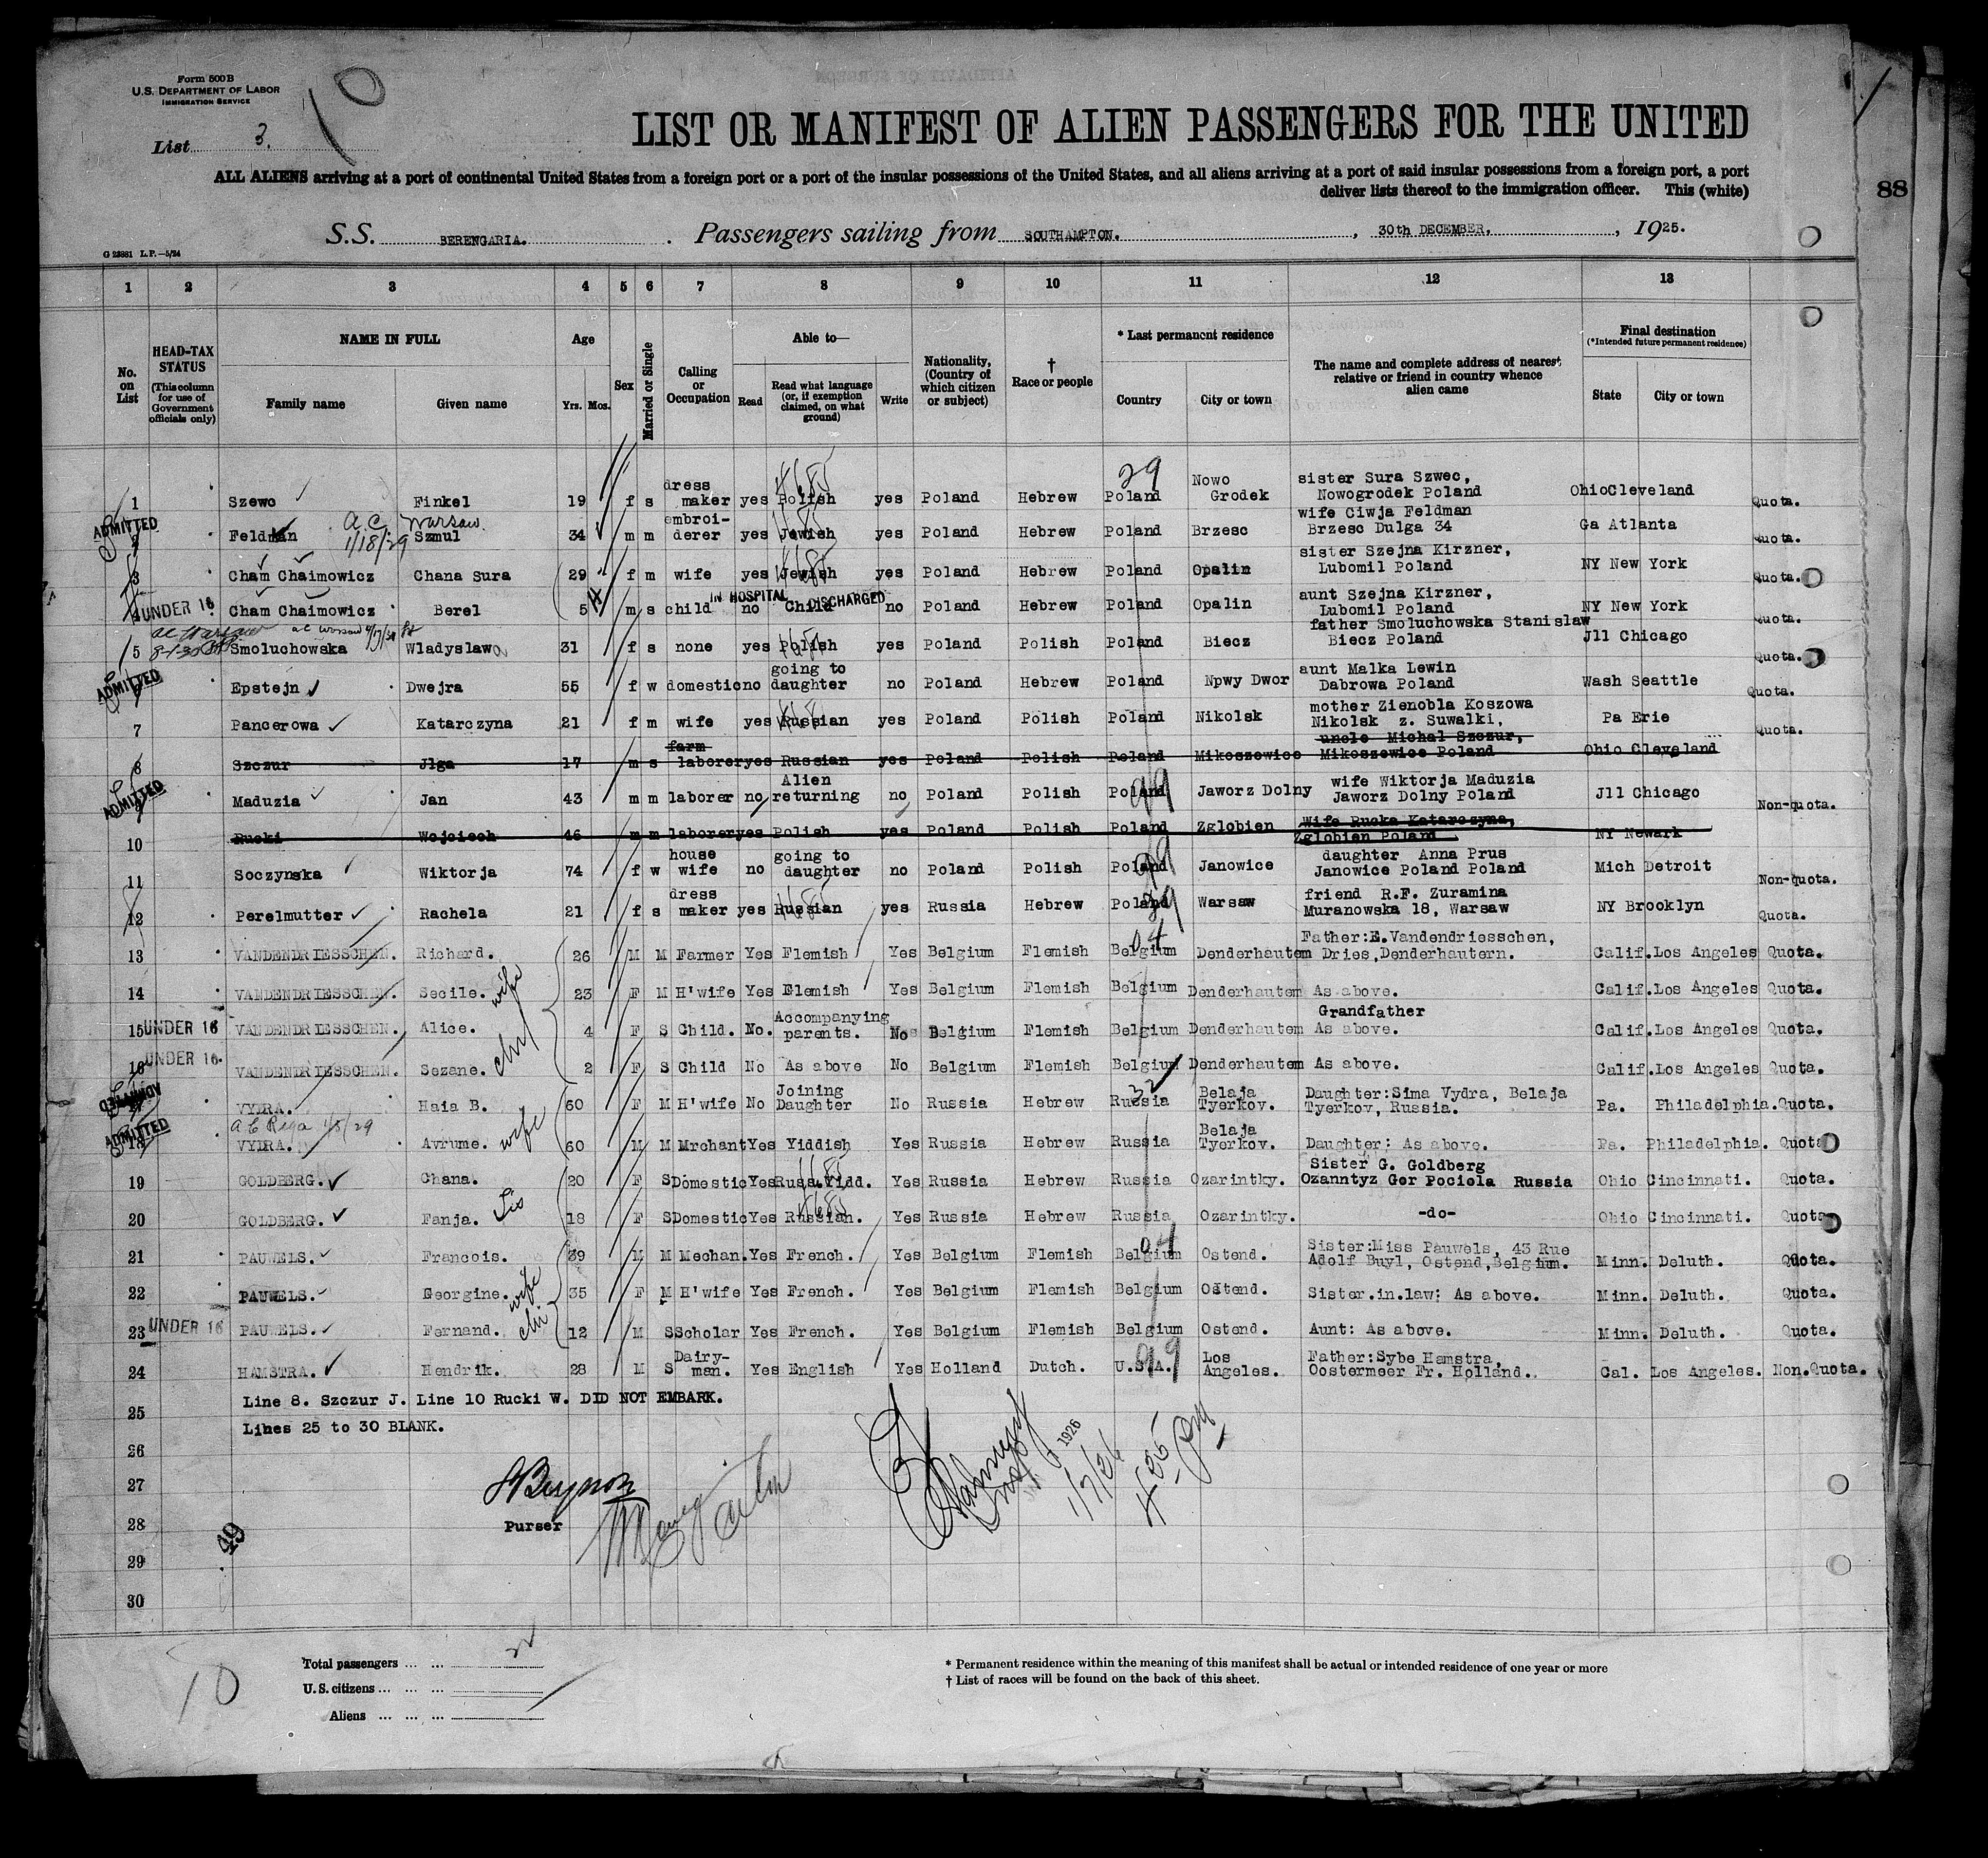 Form 500 B
U.S. DEPARTMENT OF LABOR
IMMIGRATION SERVICE
List 3.
10
LIST OR MANIFEST OF ALIEN PASSENGERS FOR THE UNITED
ALL ALIENS arriving at a port of continental United States from a foreign port or a port of the insular possessions of the United States, and all aliens arriving at a port of said insular possessions from a foreign port, a port
deliver lists thereof to the immigration officer. This (white)
88
S.S. BERENGARIA. Passengers sailing from SOUTHAMPTON. , 30th DECEMBER. , 1925.
G 23881 L.P.—5/24
1 2 3 4 5 6 7 8 9 10 11 12 13
No. on List
HEAD-TAX STATUS (This column for use of Government officials only)
NAME IN FULL
Family name Given name
Age
Yrs. Mos.
Sex
Married or Single
Calling or Occupation
Able to—
Read
Read what language (or, if exemption claimed, on what ground)
Write
Nationality, (Country of which citizen or subject)
† Race or people
* Last permanent residence
Country City or town
The name and complete address of nearest relative or friend in country whence alien came
Final destination
(*Intended future permanent residence)
State City or town
1 Szewc Finkel 19 f s dress maker yes Polish yes Poland Hebrew Poland Nowo Grodek sister Sura Szwec, Nowogrodek Poland Ohio Cleveland Quota.
ADMITTED
2 Feldman a.c. Warsaw 1/18/29 Szmul 34 m m embroi-derer yes Jewish yes Poland Hebrew Poland Brzesc wife Ciwja Feldman Brzesc Dulga 34 Ga Atlanta Quota.
3 Cham Chaimowicz Chana Sura 29 f m wife yes Jewish yes Poland Hebrew Poland Opalin sister Szejna Kirzner, Lubomil Poland NY New York Quota.
IN HOSPITAL DISCHARGED
4 UNDER 16 Cham Chaimowicz Berel 5 m s child no Child no Poland Hebrew Poland Opalin aunt Szejna Kirzner, Lubomil Poland NY New York Quota.
5 Smoluchowska Wladyslawa 31 f s none yes Polish yes Poland Polish Poland Biecz father Smoluchowska Stanislaw Biecz Poland Jll Chicago Quota.
ADMITTED
6 Epstejn Dwejra 55 f w domestic no going to daughter no Poland Hebrew Poland Npwy Dwor aunt Malka Lewin Dabrowa Poland Wash Seattle Quota.
7 Pancerowa Katarczyna 21 f m wife yes Russian yes Poland Polish Poland Nikolsk mother Zienobla Koszowa Nikolsk z. Suwalki, Pa Erie Quota.
8 Szczur Jlga 17 m s farm laborer yes Russian yes Poland Polish Poland Mikoszewice uncle Michal Szczur, Mikoszewice Poland Ohio Cleveland
ADMITTED
9 Maduzia Jan 43 m m laborer no Alien returning no Poland Polish Poland Jaworz Dolny wife Wiktorja Maduzia Jaworz Dolny Poland Jll Chicago Non-quota.
10 Rucki Wojciech 46 m m laborer yes Polish yes Poland Polish Poland Zglobien Wife Rucka Katarczyna, Zglobien Poland NY Newark
11 Soczynska Wiktorja 74 f w house wife no going to daughter no Poland Polish Poland Janowice daughter Anna Prus Janowice Poland Poland Mich Detroit Non-quota.
12 Perelmutter Rachela 21 f s dress maker yes Russian yes Russia Hebrew Poland Warsaw friend R.F. Zuramina Muranowska 18, Warsaw NY Brooklyn Quota.
13 VANDENDRIESSCHEN. Richard. 26 M M Farmer Yes Flemish Yes Belgium Flemish Belgium Denderhautem Father:E.Vandendriesschen, Dries,Denderhautern. Calif. Los Angeles Quota.
14 VANDENDRIESSCHEN. Secile. wife 23 F M H'wife Yes Flemish Yes Belgium Flemish Belgium Denderhautem As above. Calif. Los Angeles Quota.
15 UNDER 16 VANDENDRIESSCHEN. Alice. 4 F S Child. No. Accompanying parents. No Belgium Flemish Belgium Denderhautem Grandfather As above. Calif. Los Angeles Quota.
16 UNDER 16. VANDENDRIESSCHEN. Sezane. 2 F S Child No As above No Belgium Flemish Belgium Denderhautem As above. Calif. Los Angeles Quota.
ADMITTED
17 VYDRA. Haia B. wife 60 F M H'wife No Joining Daughter No Russia Hebrew Russia Belaja Tyerkov. Daughter:Sima Vydra, Belaja Tyerkov, Russia. Pa. Philadelphia. Quota.
ADMITTED
18 VYDRA. Avrume. 60 M M Mrchant Yes Yiddish Yes Russia Hebrew Russia Belaja Tyerkov. Daughter: As above. Pa. Philadelphia. Quota
19 GOLDBERG. Chana. 20 F S Domestic Yes Russ.Yidd. Yes Russia Hebrew Russia Ozarintky. Sister G. Goldberg Ozanntyz Gor Pociola Russia Ohio Cincinnati. Quota.
20 GOLDBERG. Fanja. Sis 18 F S Domestic Yes Russian. Yes Russia Hebrew Russia Ozarintky. -do- Ohio Cincinnati. Quota
21 PAUWELS. Francois. 39 M M Mechan. Yes French. Yes Belgium Flemish Belgium Ostend. Sister:Miss Pauwels, 43 Rue Adolf Buyl, Ostend,Belgium. Minn. Deluth. Quota.
22 PAUWELS. Georgine. wife 35 F M H'wife Yes French. Yes Belgium Flemish Belgium Ostend. Sister.in.law: As above. Minn. Deluth. Quota.
23 UNDER 16 PAUWELS. Fernand. 12 M S Scholar Yes French. Yes Belgium Flemish Belgium Ostend. Aunt: As above. Minn. Deluth. Quota.
24 HAMSTRA. Hendrik. 28 M S Dairy-man. Yes English Yes Holland Dutch. U.S.A. Los Angeles. Father:Sybe Hamstra, Oostermeer Fr. Holland. Cal. Los Angeles. Non.Quota.
Line 8. Szczur J. Line 10 Rucki W. DID NOT EMBARK.
25
Lines 25 to 30 BLANK.
26
27
28
Purser
29
30
49
1926
1/7/26
4 35 PM
Total passengers ... ... 22
U.S. citizens ... ... ...
Aliens ... ... ...
10
* Permanent residence within the meaning of this manifest shall be actual or intended residence of one year or more
† List of races will be found on the back of this sheet.